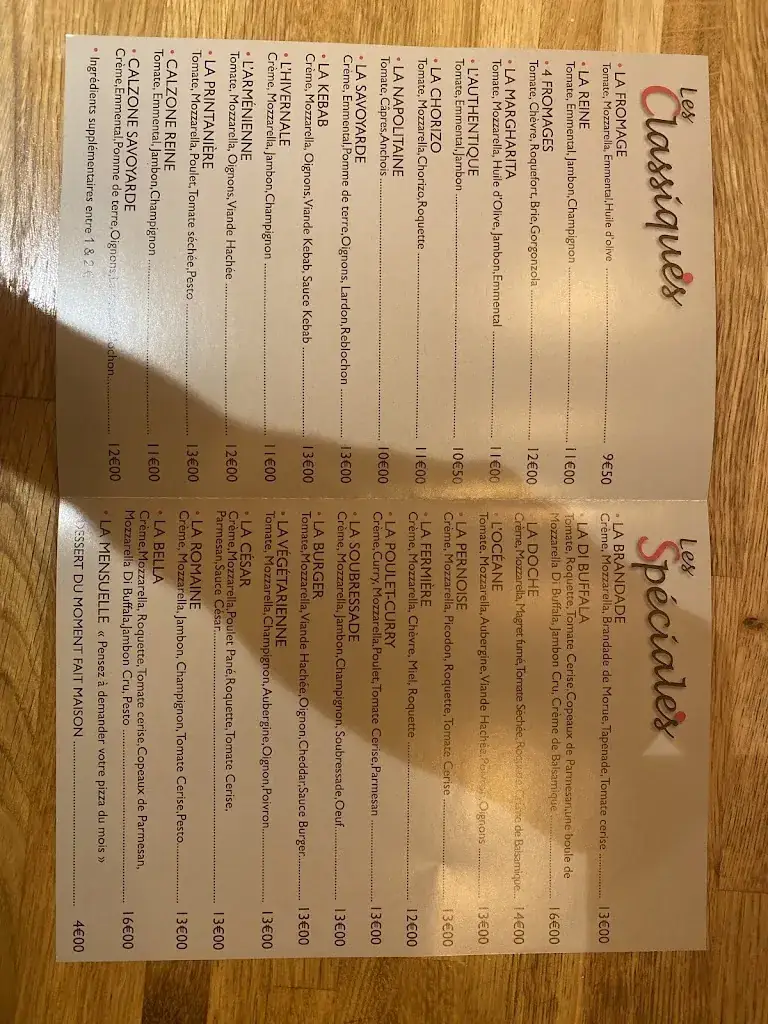 Les Classiques
• LA FROMAGE
Tomate, Mozzarella, Emmental,Huile d'olive 9€50
• LA REINE
Tomate, Emmental, Jambon,Champignon 11€00
• 4 FROMAGES
Tomate, Chèvre, Roquefort, Brie, Gorgonzola 12€00
• LA MARGHARITA
Tomate, Mozzarella, Huile d'Olive, Jambon,Emmental 11€00
• L'AUTHENTIQUE
Tomate, Emmental,Jambon 10€50
• LA CHORIZO
Tomate, Mozzarella,Chorizo,Roquette 11€00
• LA NAPOLITAINE
Tomate, Câpres,Anchois 10€00
• LA SAVOYARDE
Crème, Emmental,Pomme de terre,Oignons, Lardon,Reblochon 13€00
• LA KEBAB
Crème, Mozzarella, Oignons,Viande Kebab, Sauce Kebab 13€00
• L'HIVERNALE
Crème, Mozzarella, Jambon,Champignon 11€00
• L'ARMÉNIENNE
Tomate, Mozzarella, Oignons,Viande Hachée 12€00
• LA PRINTANIÈRE
Tomate, Mozzarella, Poulet,Tomate séchée,Pesto 13€00
• CALZONE REINE
Tomate, Emmental, Jambon,Champignon 11€00
• CALZONE SAVOYARDE
Crème,Emmental,Pomme de terre,Oignons, 12€00
• Ingrédients supplémentaires entre 1 & 2
Les Spéciales
• LA BRANDADE
Crème, Mozzarella, Brandade de Morue,Tapenade,Tomate cerise 13€00
• LA DI BUFFALA
Tomate, Roquette, Tomate Cerise,Copeaux de Parmesan,une boule de
Mozzarella Di Buffala, Jambon Cru, Crème de Balsamique 16€00
• LA DOCHE
Crème, Mozzarella, Magret fumé,Tomate Séchée, de Balsamique 14€00
• L'OCÉANE
Tomate, Mozzarella,Aubergine,Viande Hachée,Poivron,Oignons 13€00
• LA PERNOISE
Crème, Mozzarella, Picodon, Roquette, Tomate Cerise 13€00
• LA FERMIÈRE
Crème, Mozzarella, Chèvre, Miel, Roquette 12€00
• LA POULET-CURRY
Crème,Curry,Mozzarella,Poulet,Tomate Cerise,Parmesan 13€00
• LA SOUBRESSADE
Crème, Mozzarella, Jambon,Champignon, Soubressade,Oeuf 13€00
• LA BURGER
Tomate,Mozzarella,Viande Hachée,Oignon,Cheddar,Sauce Burger 13€00
• LA VÉGÉTARIENNE
Tomate, Mozzarella,Champignon,Aubergine,Oignon,Poivron 13€00
• LA CÉSAR
Crème,Mozzarella,Poulet Pané,Roquette,Tomate Cerise,
Parmesan,Sauce César 13€00
• LA ROMAINE
Crème, Mozzarella, Jambon, Champignon, Tomate Cerise,Pesto 13€00
• LA BELLA
Crème,Mozzarella, Roquette, Tomate cerise,Copeaux de Parmesan,
Mozzarella Di Buffala,Jambon Cru, Pesto 16€00
• LA MENSUELLE « Pensez à demander votre pizza du mois »
DESSERT DU MOMENT FAIT MAISON 4€00